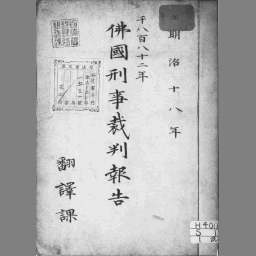 明治十八年
千八百八十二年
佛國刑事裁判報告
飜譯課
H400